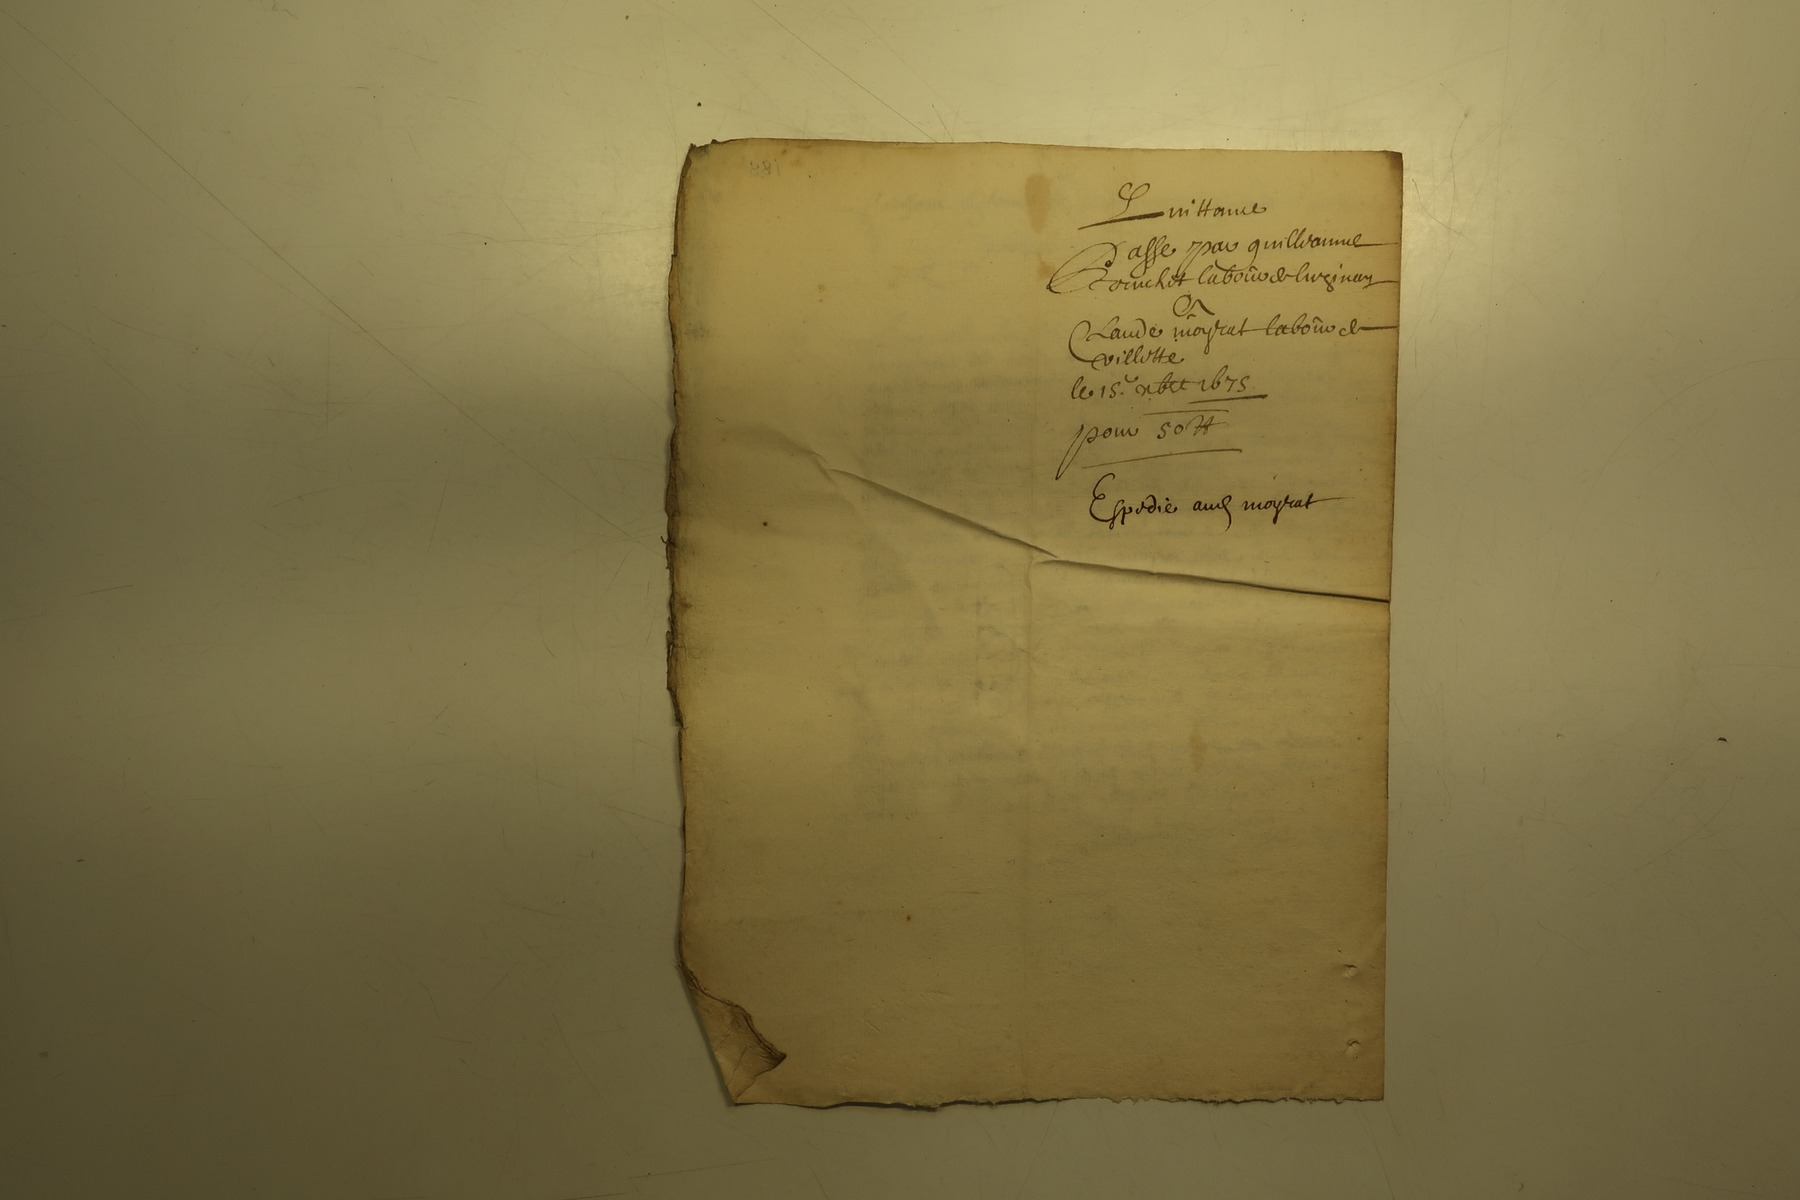 Quittance
Passe par guilleaume
Bouchot laboũr de luginay
A
Claude moyrat laboũr de
villotte
le 15.e xbre 1675
pour 50 ₶
Espedie aud moyrat